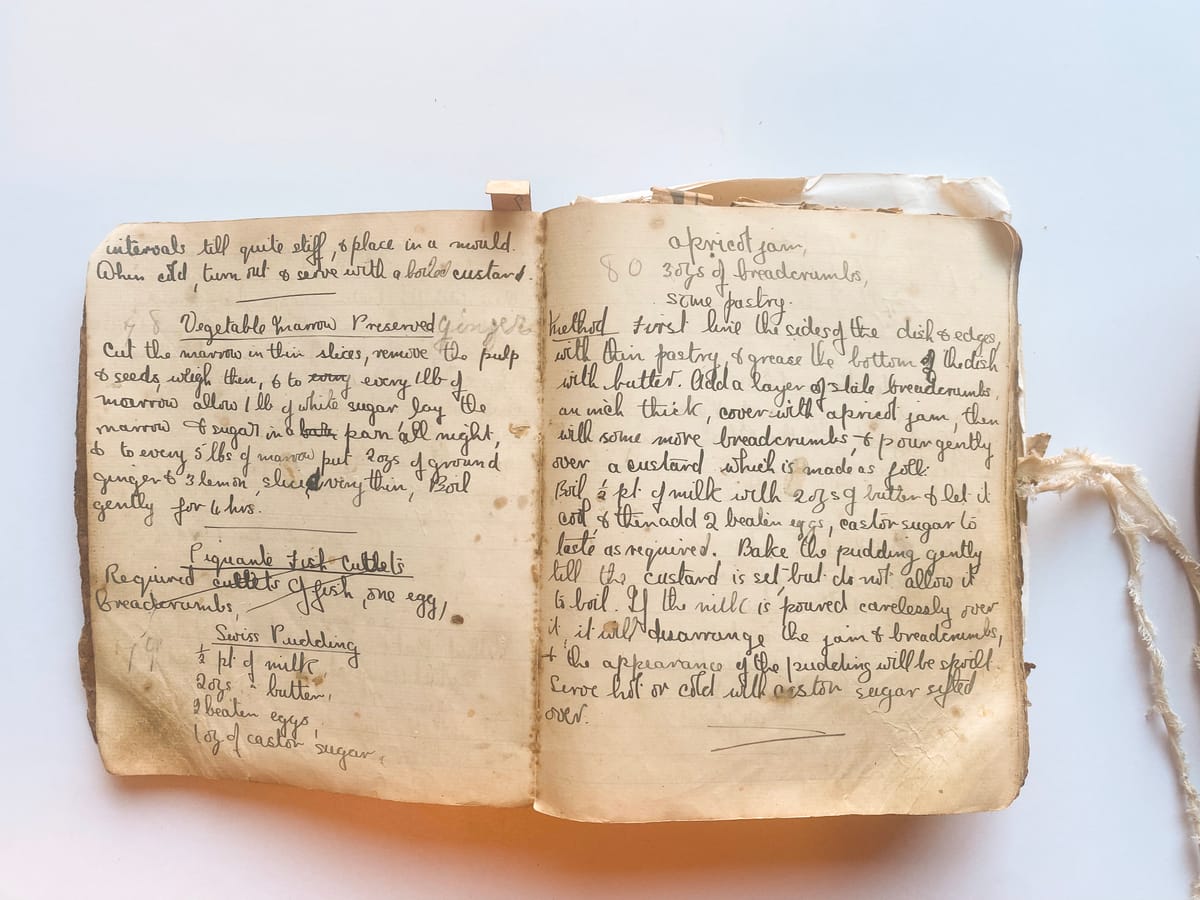 intervals till quite stiff, & place in a mould.
When cold, turn out & serve with a boiled custard.
78 Vegetable Marrow Preserved ginger
Cut the marrow in thin slices, remove the pulp
& seeds, weigh then, & to every every 1 lb of
marrow allow 1 lb of white sugar lay the
marrow & sugar in a bath pan all night,
& to every 5 lbs of marrow put 2ozs of ground
ginger & 3 lemon, sliced very thin, Boil
gently for 4 hrs.
Piquante Fish Cutlets
Required cutlets of fish, one egg,
breadcrumbs,
79 Swiss Pudding
½ pt of milk
2ozs " butter,
2 beaten eggs,
1 oz of castor sugar,
apricot jam,
80 3ozs of breadcrumbs,
some pastry.
Method First line the sides of the dish & edges,
with thin pastry, & grease the bottom of the dish
with butter. Add a layer of stale breadcrumbs,
an inch thick, cover with apricot jam, then
with some more breadcrumbs, & pour gently
over a custard which is made as foll:
Boil ½ pt. of milk with 2ozs of butter & let it
cool, & then add 2 beaten eggs, castor sugar to
taste as required. Bake the pudding gently
till the custard is set, but do not allow it
to boil. If the milk is poured carelessly over
it, it will disarrange the jam & breadcrumbs,
& the appearance of the pudding will be spoilt.
Serve hot or cold with castor sugar sifted
over.